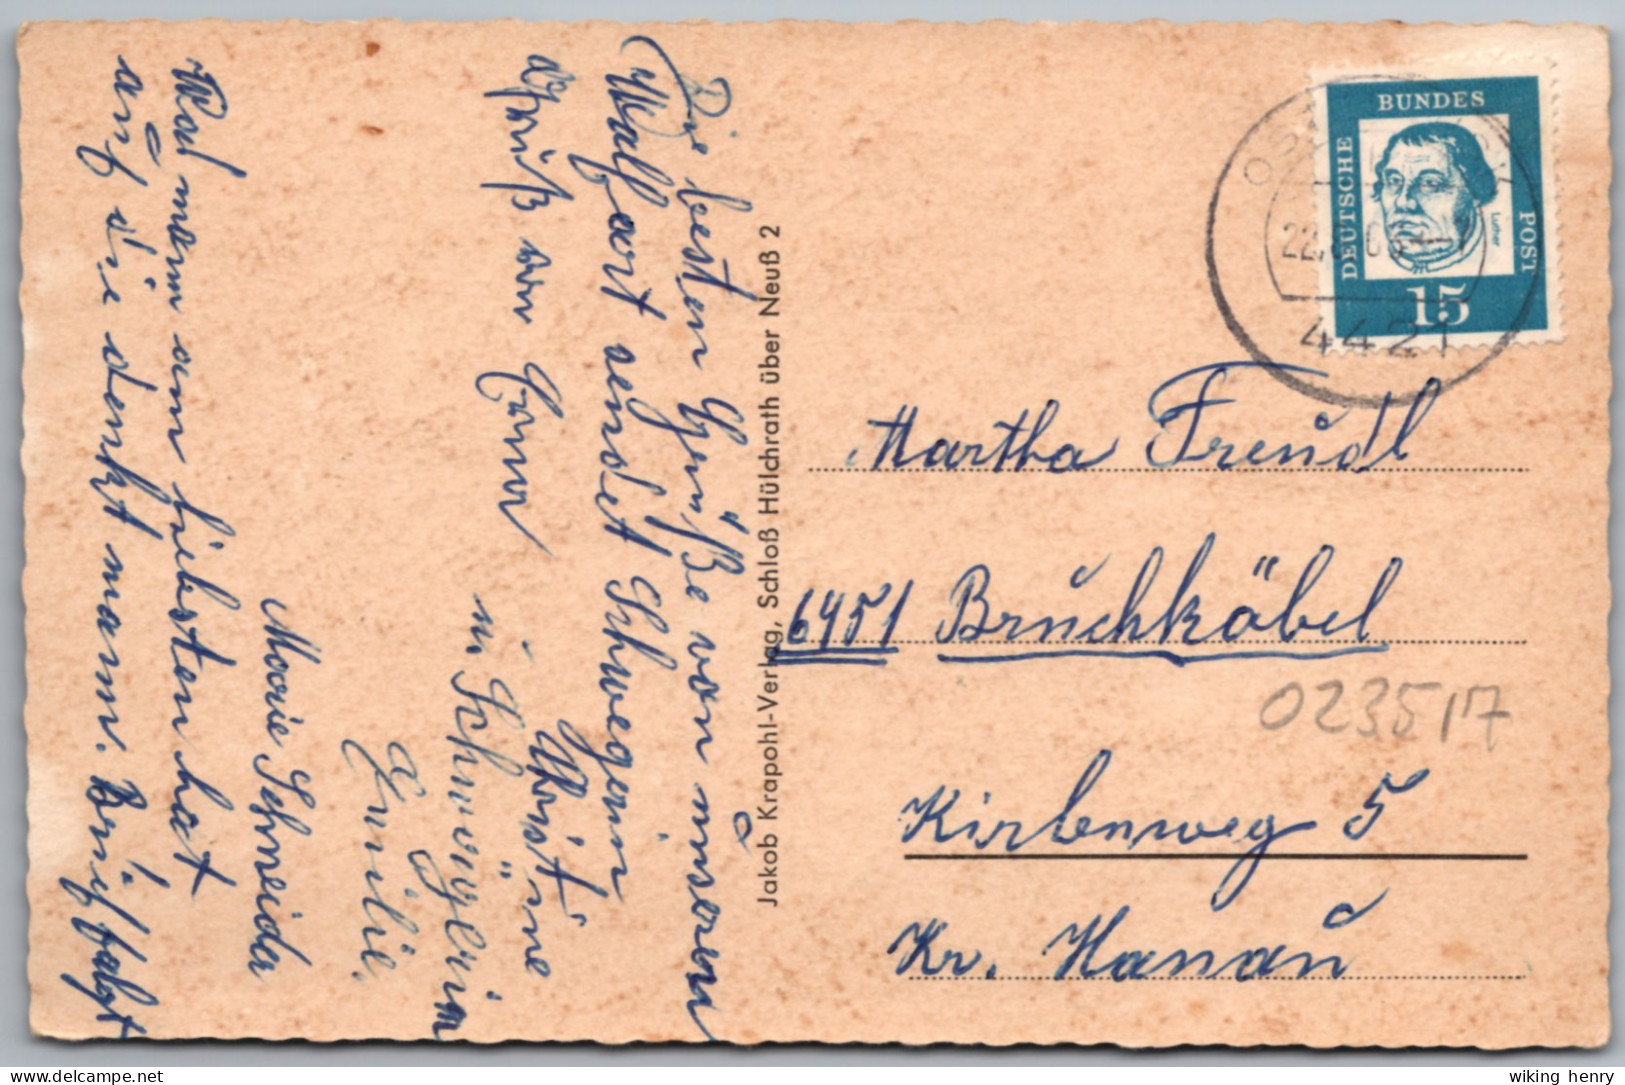 Die besten Grüße von unseren
Wallfart sendet Schwegerin
Christine
Gruß von Erna
u. Schwägerin
Emilie.
Marie Schneider
Was man am liebsten hat
auf die denkt mann. Brief folgt
Jakob Krapohl-Verlag, Schloß Hülchrath über Neuß 2
DEUTSCHE
BUNDES
POST
Luther
15
4421
Martha Freudl
6451 Bruchköbel
023517
Kirlenweg 5
Kr. Hanau
wiking henry